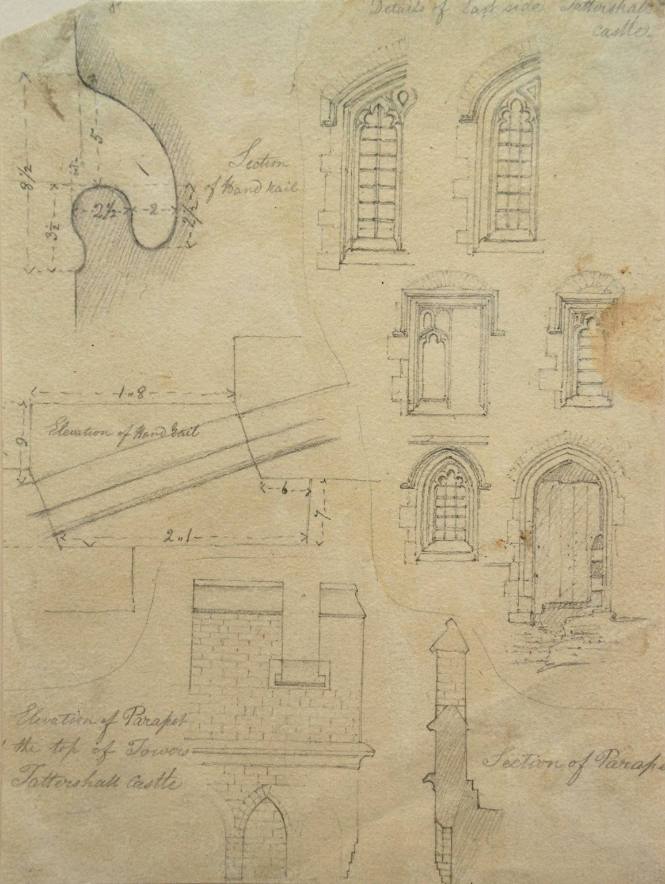 Details of East side Tattershall
Castle.
8 1/2
5
1
2 1/2
2
2 1/2
3 1/2
Section
of Hand rail
1..8
9
Elevation of Hand Rail
6
7
2..1
Elevation of Parapet
the top of Towers
Tattershall Castle
Section of Parape